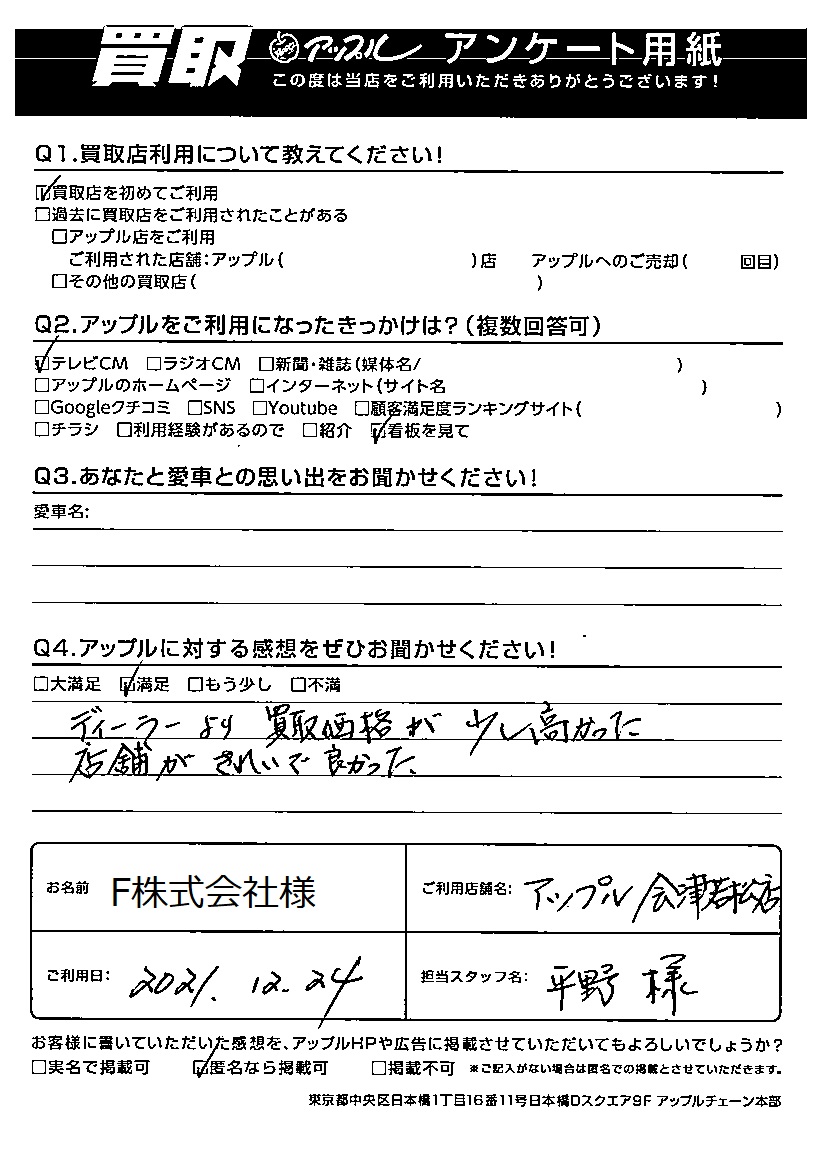 買取 アップル アンケート用紙
この度は当店をご利用いただきありがとうございます!
Q1.買取店利用について教えてください!
☑買取店を初めてご利用
□過去に買取店をご利用されたことがある
□アップル店をご利用
ご利用された店舗:アップル( )店 アップルへのご売却( 回目)
□その他の買取店( )
Q2.アップルをご利用になったきっかけは?(複数回答可)
☑テレビCM □ラジオCM □新聞・雑誌(媒体名/ )
□アップルのホームページ □インターネット(サイト名 )
□Googleクチコミ □SNS □Youtube □顧客満足度ランキングサイト( )
□チラシ □利用経験があるので □紹介 ☑看板を見て
Q3.あなたと愛車との思い出をお聞かせください!
愛車名:
Q4.アップルに対する感想をぜひお聞かせください!
□大満足 ☑満足 □もう少し □不満
ディーラーより買取価格が少し高かった
店舗がきれいで良かった。
お名前 F株式会社様 ご利用店舗名: アップル/会津若松店
ご利用日: 2021. 12. 24 担当スタッフ名: 平野 様
お客様に書いていただいた感想を、アップルHPや広告に掲載させていただいてもよろしいでしょうか?
□実名で掲載可 ☑匿名なら掲載可 □掲載不可 ※ご記入がない場合は匿名での掲載とさせていただきます。
東京都中央区日本橋1丁目16番11号日本橋Dスクエア9F アップルチェーン本部